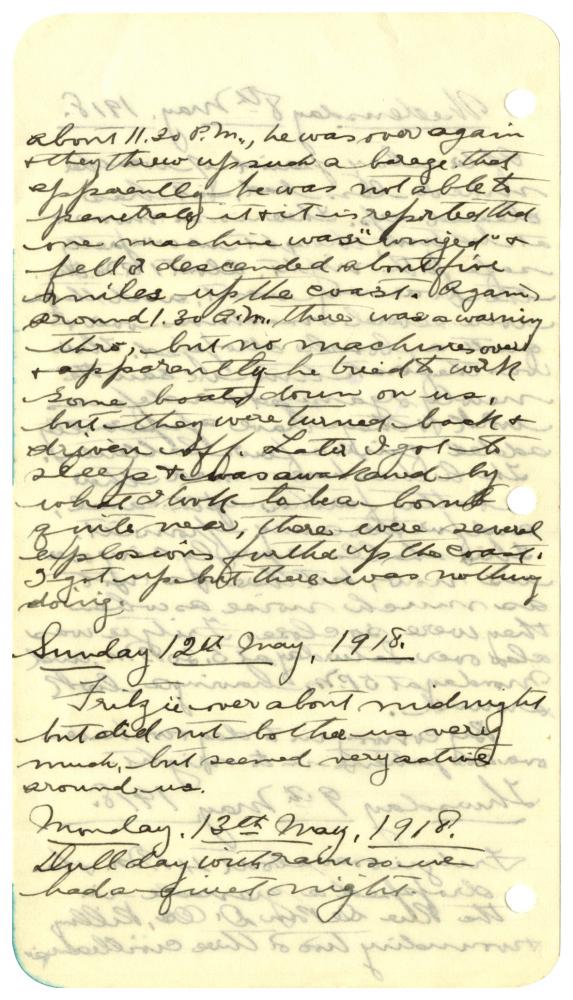 about 11.30 P.M., he was over again
& they threw up such a barage that
apparently he was not able to
penetrate it & it is reported that
one machine was "winged" &
fell & descended about five
miles up the coast. Again
around 1.30 A.M. there was a warning
thro, but no machines over
& apparently he tried to work
some boats down on us,
but they were turned back &
driven off. Later I got to
sleep & was awakened by
what I took to be a bomb
quite near, there were several
explosions further up the coast.
I got up but there was nothing
doing.
Sunday 12th May, 1918.
Fritz is over about midnight
but did not bother us very
much, but seemed very active
around us.
Monday, 13th May, 1918.
Dull day with rain so we
had a quiet night.